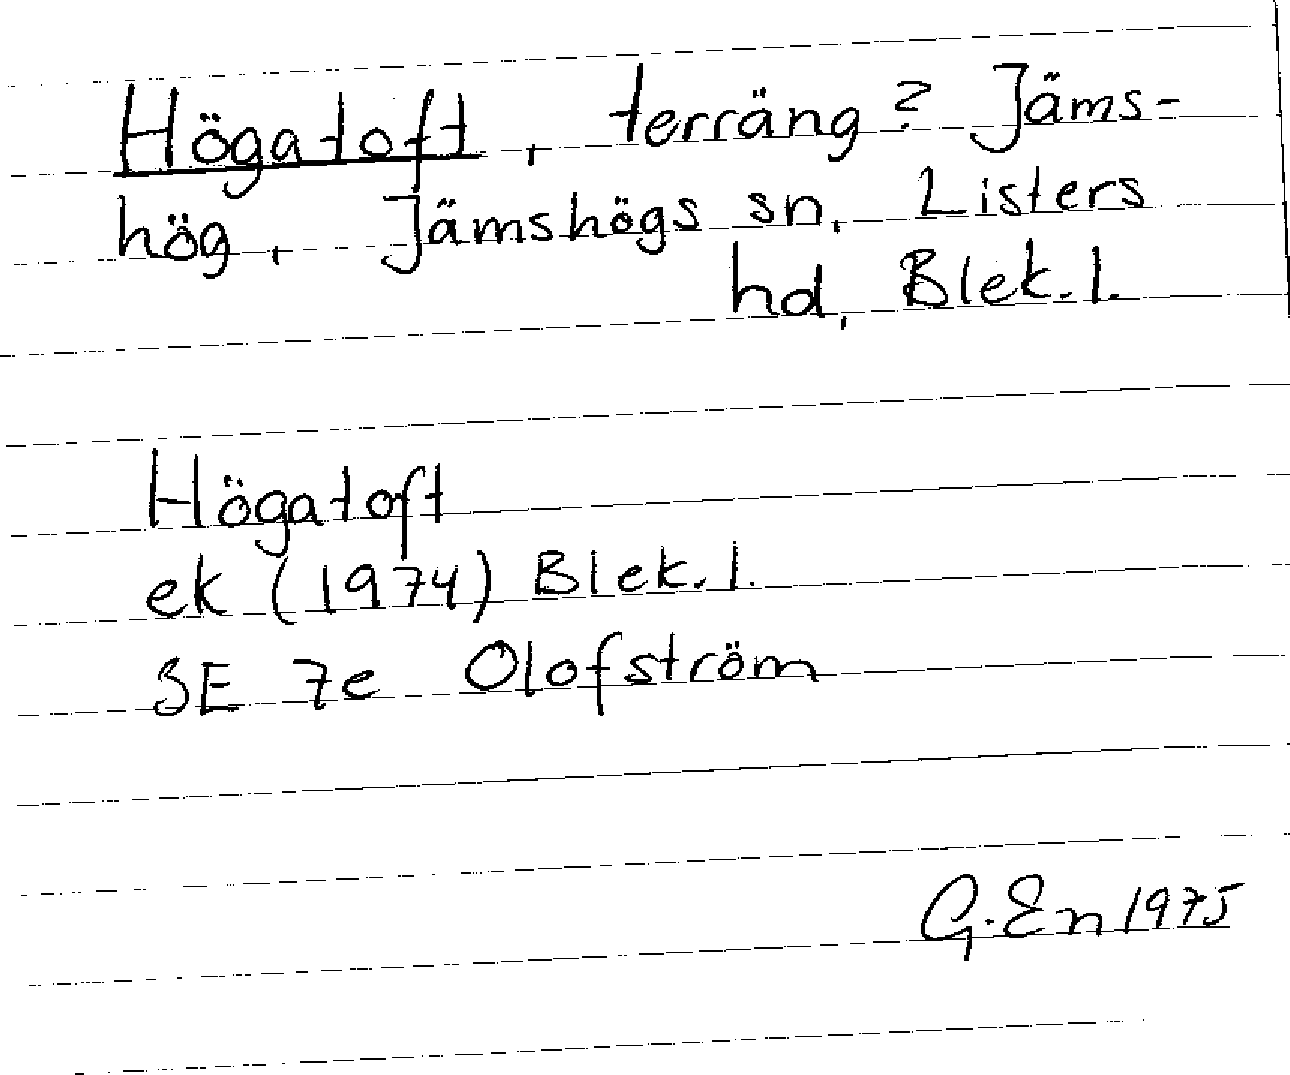 Högatoft, terräng? Jäms=
hög, Jämshögs sn, Listers
hd, Blek. l.
Högatoft
ek (1974) Blek. l.
3E 7e Olofström
G. En 1975